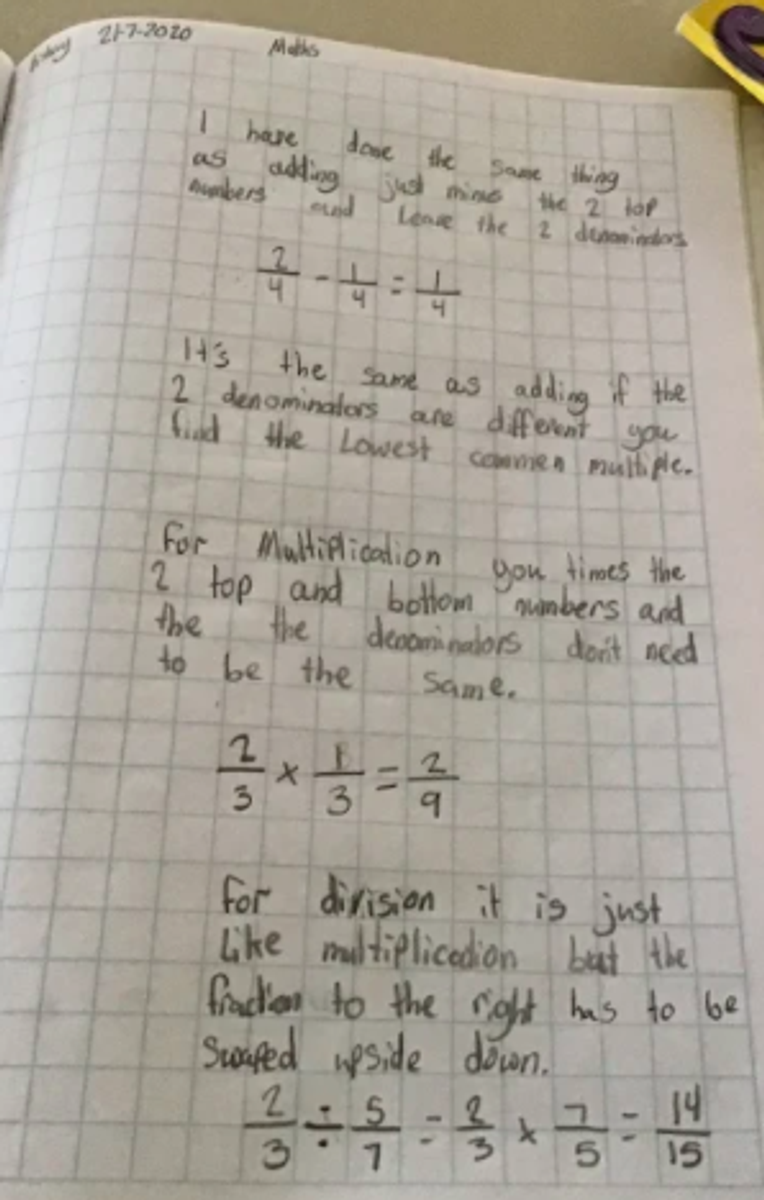 21-7-2020 Maths
I have done the same thing
as adding just mines the 2 top
numbers and Leave the 2 denominators
2/4 - 1/4 = 1/4
It's the same as adding if the
2 denominators are different you
find the Lowest commen multiple.
For Multiplication you times the
2 top and bottom numbers and
the the denominators don't need
to be the same.
2/3 × 1/3 = 2/9
For division it is just
Like multiplication but the
fraction to the right has to be
Swaped upside down.
2/3 ÷ 5/7 = 2/3 × 7/5 = 14/15